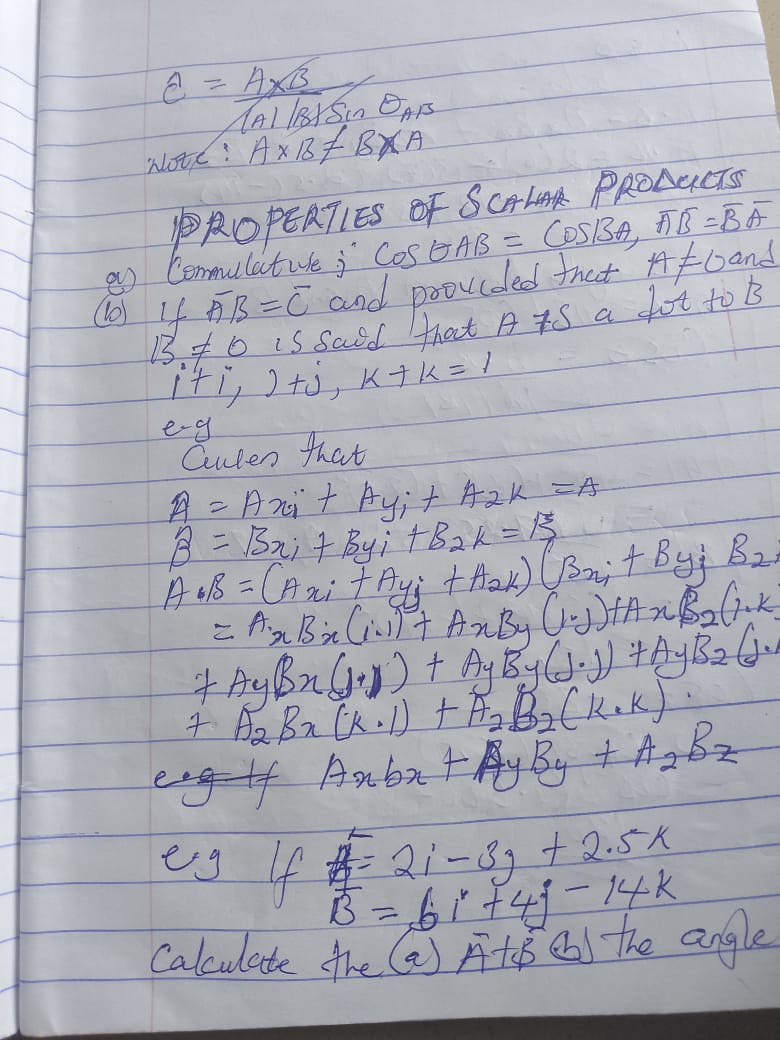 ĉ = A×B
|A| |B| Sin θAB
Note: A × B ≠ B × A
PROPERTIES OF SCALAR PRODUCTS
a) Commulative; Cos θAB = COSBA, A̅B̅ = B̅A̅
(b) if A̅B̅ = C̅ and provided that A ≠ 0 and
B ≠ 0 is said that A is a dot to B
i+i, j+j, k+k = 1
e-g
Given that
A̅ = Axi + Ayj + A2k = A
B̅ = Bxi + Byj + B2k = B̅
A•B = (Axi + Ayj + A2k) (Bxi + Byj B2
= AxBx (i.i) + AxBy (i.j) + AxB2 (i.k
+ AyBx (j.i) + AyBy (j.j) + AyB2 (j.
+ A2Bx (k.i) + A2B2 (k.k).
e.g If Axbx + AyBy + A2Bz
e.g If A̅ = 2i - 3j + 2.5k
B̅ = 6i + 4j - 14k
Calculate the (a) A̅+B̅ (b) the angle